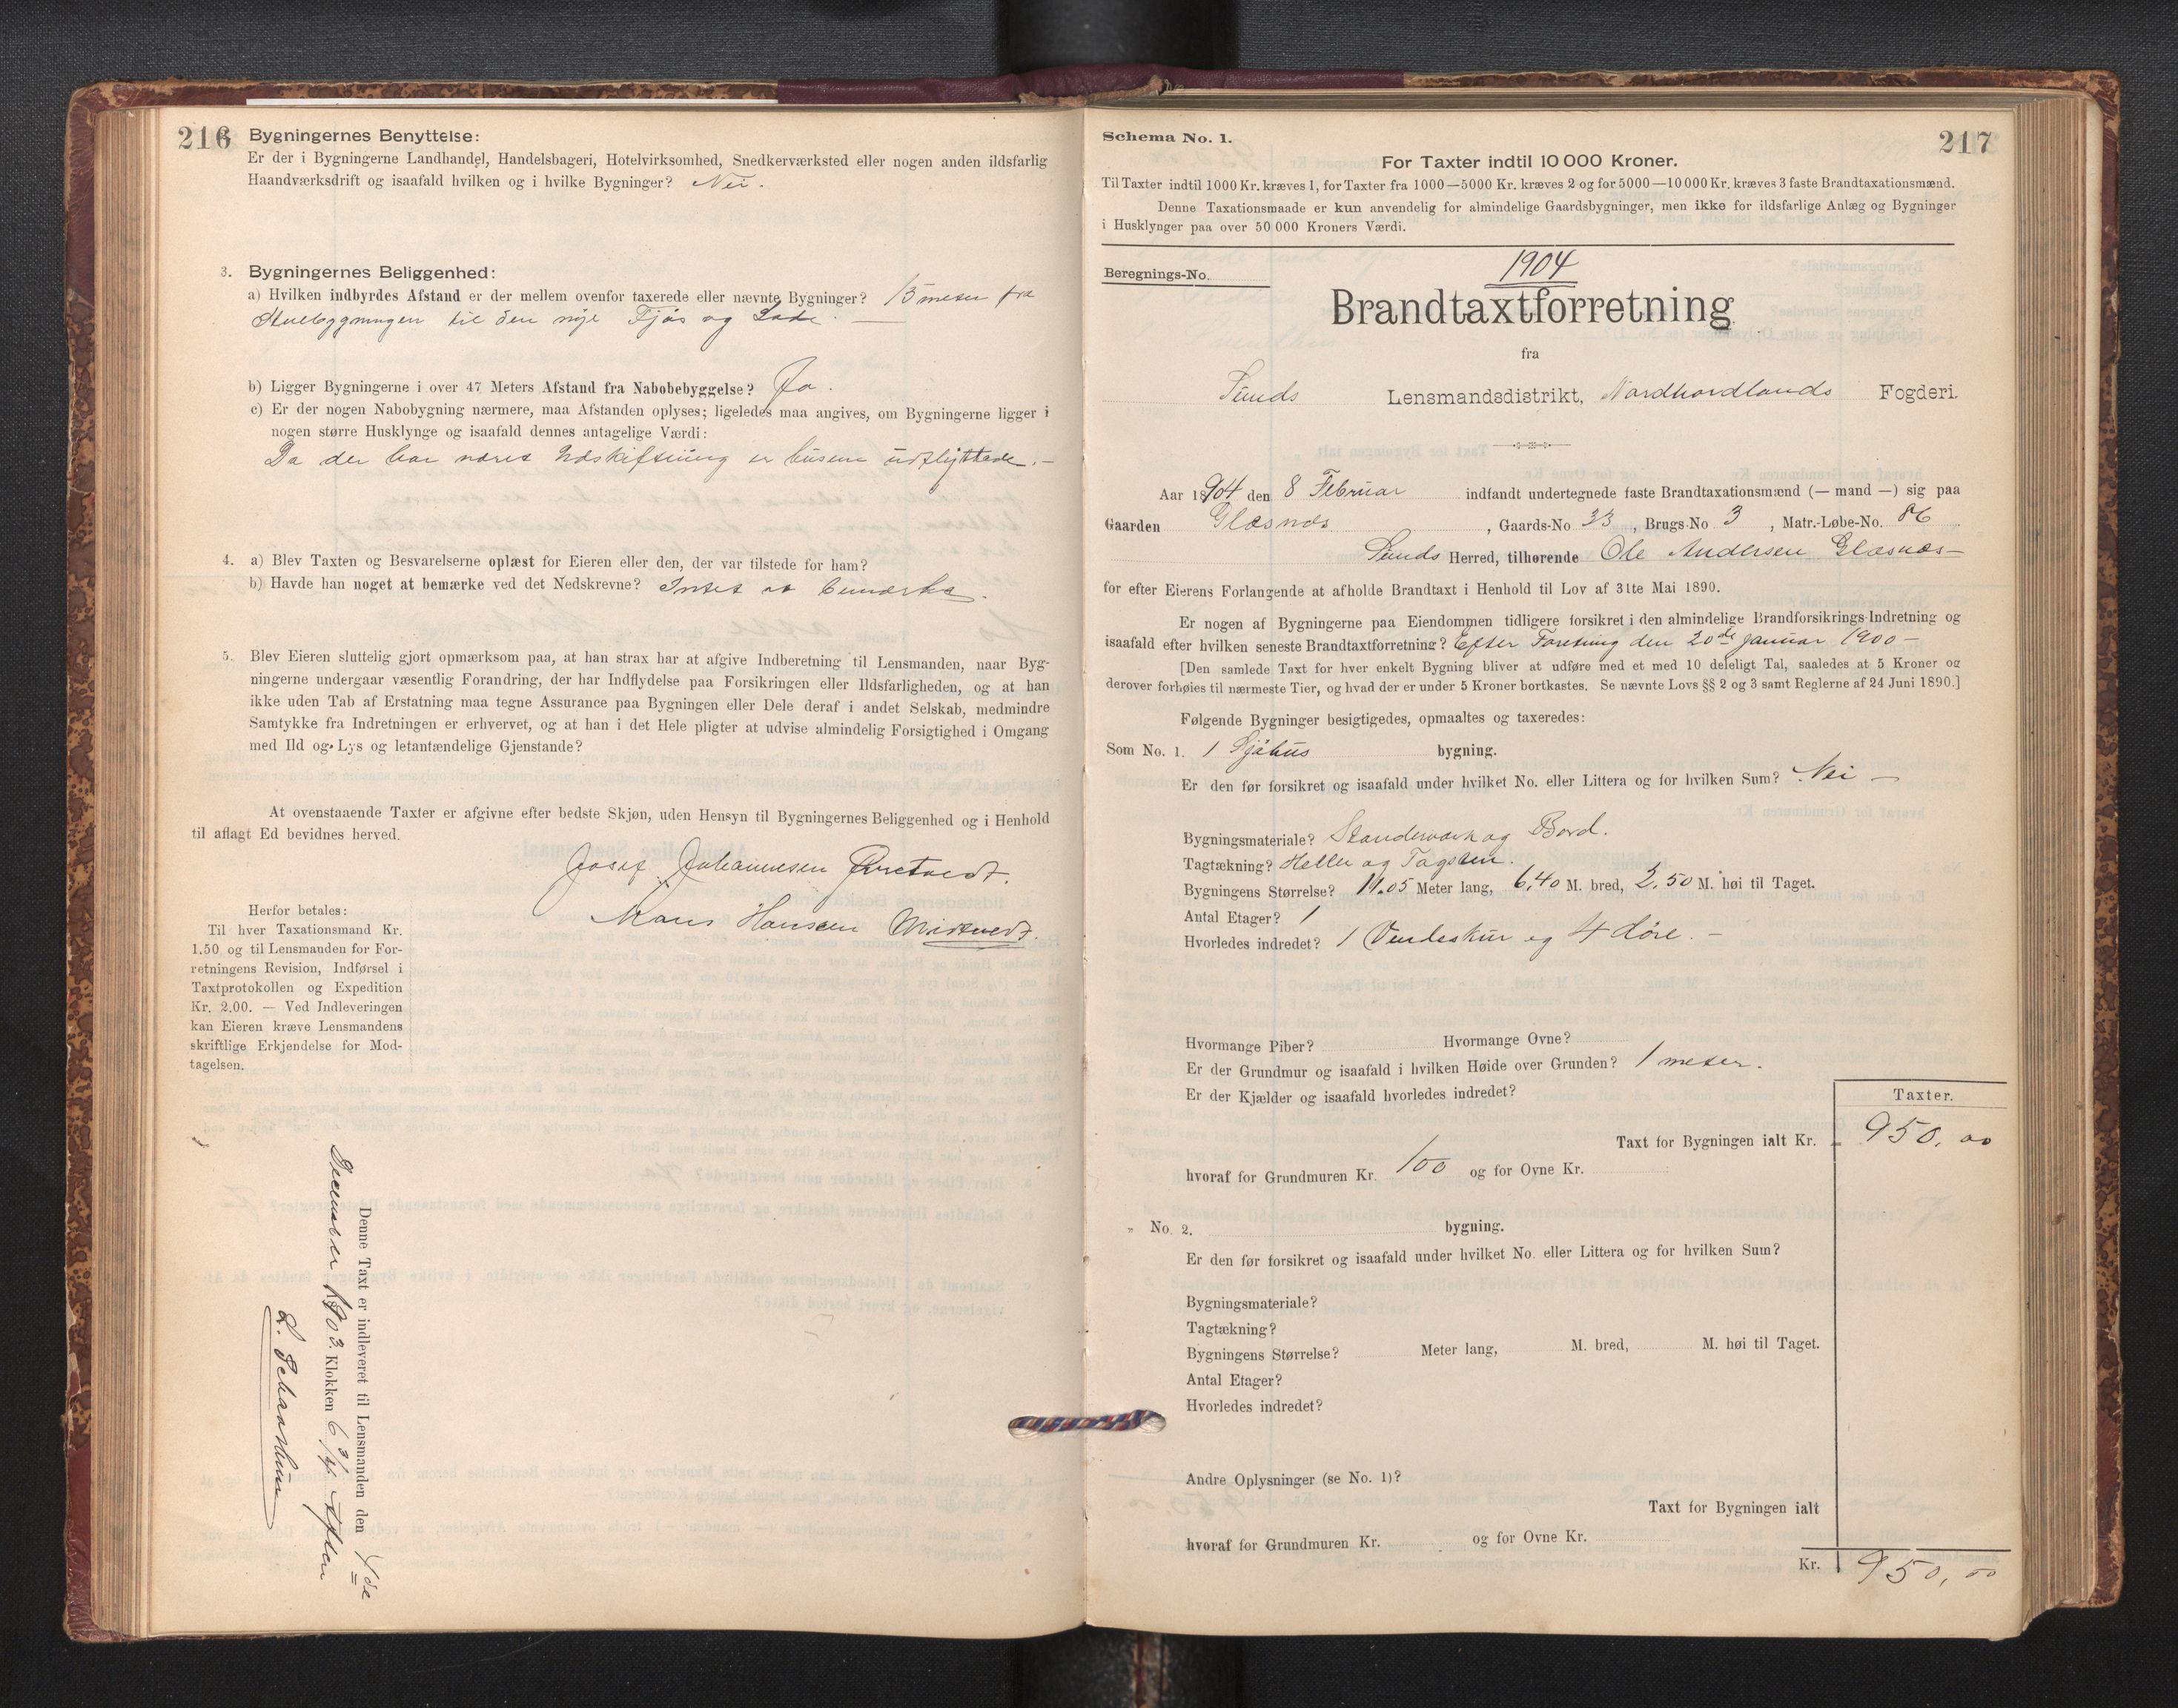 216
Bygningernes Benyttelse:
Er der i Bygningerne Landhandel, Handelsbageri, Hotelvirksomhed, Snedkerværksted eller nogen anden ildsfarlig
Haandværksdrift og isaafald hvilken og i hvilke Bygninger? Nei.
3. Bygningernes Beliggenhed:
a) Hvilken indbyrdes Afstand er der mellem ovenfor taxerede eller nævnte Bygninger? 15 meter fra
Stuebygningen til den nye Fjös og Lade.
b) Ligger Bygningerne i over 47 Meters Afstand fra Nabobebyggelse? Ja.
c) Er der nogen Nabobygning nærmere, maa Afstanden oplyses; ligeledes maa angives, om Bygningerne ligger i
nogen større Husklynge og isaafald dennes antagelige Værdi:
Da der har været Udskiftning er husene udflyttede.-
4. a) Blev Taxten og Besvarelserne oplæst for Eieren eller den, der var tilstede for ham?
b) Havde han noget at bemærke ved det Nedskrevne? Intet at bemærke.
5. Blev Eieren sluttelig gjort opmærksom paa, at han strax har at afgive Indberetning til Lensmanden, naar Byg-
ningerne undergaar væsentlig Forandring, der har Indflydelse paa Forsikringen eller Ildsfarligheden, og at han
ikke uden Tab af Erstatning maa tegne Assurance paa Bygningen eller Dele deraf i andet Selskab, medmindre
Samtykke fra Indretningen er erhvervet, og at han i det Hele pligter at udvise almindelig Forsigtighed i Omgang
med Ild og Lys og letantændelige Gjenstande?
At ovenstaaende Taxter er afgivne efter bedste Skjøn, uden Hensyn til Bygningernes Beliggenhed og i Henhold
til aflagt Ed bevidnes herved.
Josef Johannesen
Mons Hansen Midtvedt.
Herfor betales:
Til hver Taxationsmand Kr.
1.50 og til Lensmanden for For-
retningens Revision, Indførsel i
Taxtprotokollen og Expedition
Kr. 2.00. — Ved Indleveringen
kan Eieren kræve Lensmandens
skriftlige Erkjendelse for Mod-
tagelsen.
Denne Taxt er indleveret til Lensmanden den 4de
December 1903 Klokken 6 3/4 Efter
217
Schema No. 1.
For Taxter indtil 10 000 Kroner.
Til Taxter indtil 1000 Kr. kræves 1, for Taxter fra 1000—5000 Kr. kræves 2 og for 5000—10 000 Kr. kræves 3 faste Brandtaxationsmænd.
Denne Taxationsmaade er kun anvendelig for almindelige Gaardsbygninger, men ikke for ildsfarlige Anlæg og Bygninger
i Husklynger paa over 50 000 Kroners Værdi.
Beregnings-No.
1904
Brandtaxtforretning
fra
Sunds Lensmandsdistrikt, Nordhordlands Fogderi.
Aar 1904 den 8 Februar indfandt undertegnede faste Brandtaxationsmænd (— mand —) sig paa
Gaarden Glæsnæs, Gaards-No 33, Brugs-No 3, Matr.-Løbe-No. 86
Sunds Herred, tilhørende Ole Andersen Glæsnæs—
for efter Eierens Forlangende at afholde Brandtaxt i Henhold til Lov af 31te Mai 1890.
Er nogen af Bygningerne paa Eiendommen tidligere forsikret i den almindelige Brandforsikrings-Indretning og
isaafald efter hvilken seneste Brandtaxtforretning? Efter Foretning den 20de Januar 1900—
[Den samlede Taxt for hver enkelt Bygning bliver at udføre med et med 10 deleligt Tal, saaledes at 5 Kroner og
derover forhøies til nærmeste Tier, og hvad der er under 5 Kroner bortkastes. Se nævnte Lovs §§ 2 og 3 samt Reglerne af 24 Juni 1890.]
Følgende Bygninger besigtigedes, opmaaltes og taxeredes:
Som No. 1. 1 Sjöhus bygning.
Er den før forsikret og isaafald under hvilket No. eller Littera og for hvilken Sum? Nei —
Bygningsmateriale? Standerværk og Bord.
Tagtækning? Heller og Tagsten.
Bygningens Størrelse? 11.05 Meter lang, 6,40 M. bred, 2,50 M. høi til Taget.
Antal Etager? 1
Hvorledes indredet? 1 Vendeskur og 4 döre.—
Hvormange Piber? Hvormange Ovne?
Er der Grundmur og isaafald i hvilken Høide over Grunden? 1 meter.
Er der Kjælder og isaafald hvorledes indredet?
Taxter.
Taxt for Bygningen ialt Kr. 950,00
hvoraf for Grundmuren Kr. 100 og for Ovne Kr.
" No. 2. bygning.
Er den før forsikret og isaafald under hvilket No. eller Littera og for hvilken Sum?
Bygningsmateriale?
Tagtækning?
Bygningens Størrelse? Meter lang, M. bred, M. høi til Taget.
Antal Etager?
Hvorledes indredet?
Andre Oplysninger (se No. 1)?
Taxt for Bygningen ialt
hvoraf for Grundmuren Kr. og for Ovne Kr.
Kr. 950,00